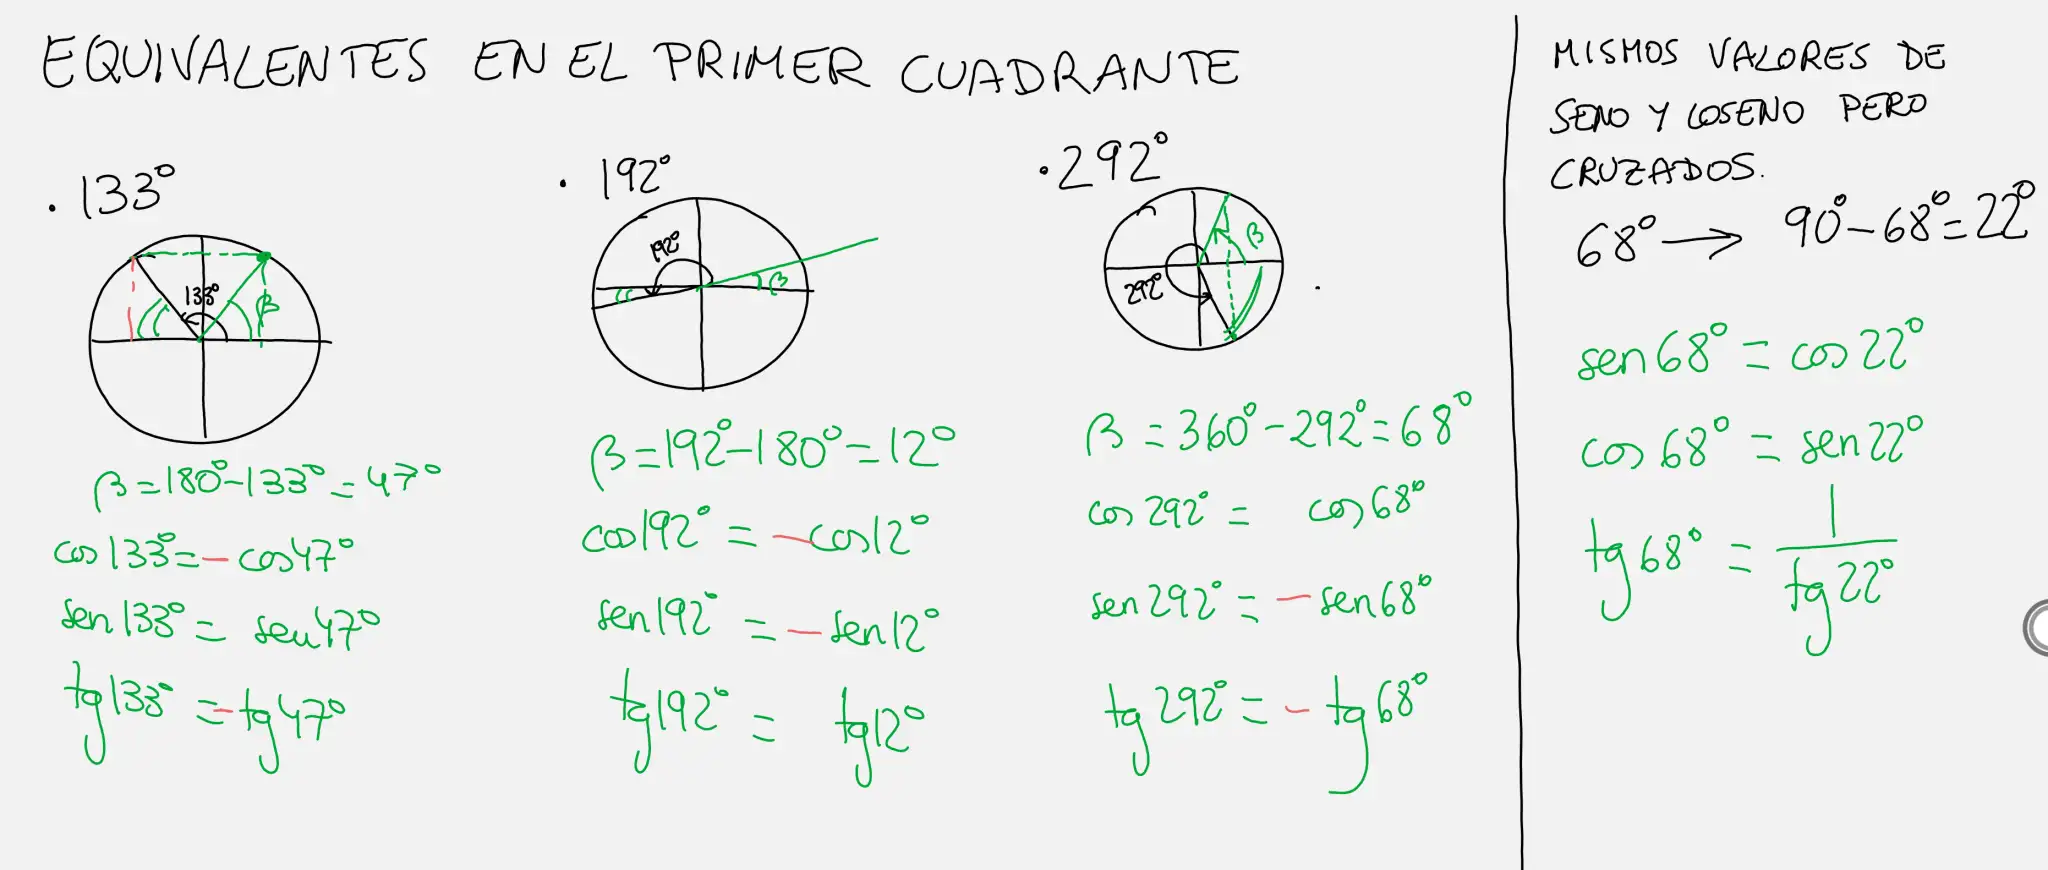 EQUIVALENTES EN EL PRIMER CUADRANTE
. 133°
133°
β
β = 180° - 133° = 47°
cos 133° = - cos 47°
sen 133° = sen 47°
tg 133° = - tg 47°
. 192°
192°
β
β = 192° - 180° = 12°
cos 192° = - cos 12°
sen 192° = - sen 12°
tg 192° = tg 12°
. 292°
292°
β
β = 360° - 292° = 68°
cos 292° = cos 68°
sen 292° = - sen 68°
tg 292° = - tg 68°
MISMOS VALORES DE
SENO Y COSENO PERO
CRUZADOS.
68° → 90° - 68° = 22°
sen 68° = cos 22°
cos 68° = sen 22°
tg 68° = 1 / tg 22°